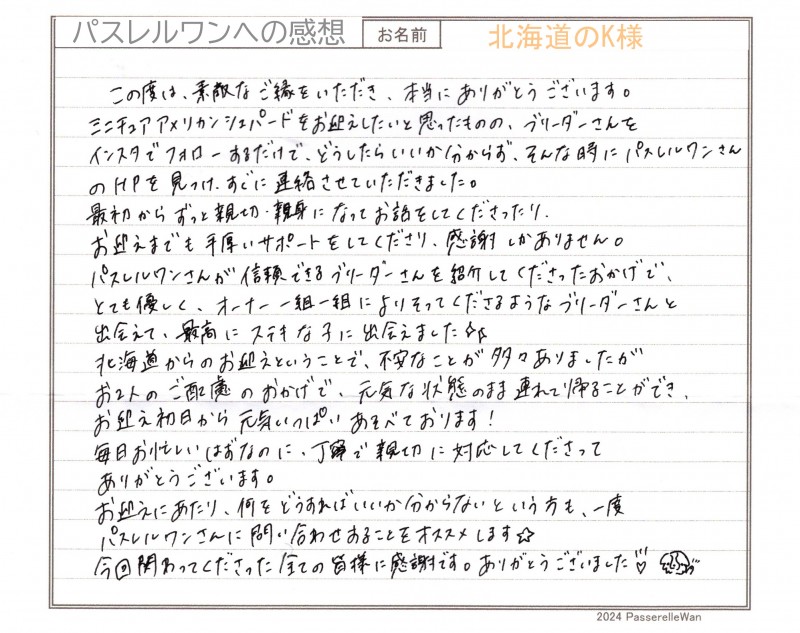 パスレルワンへの感想 お名前 北海道のK様
この度は、素敵なご縁をいただき、本当にありがとうございます。
ミニチュアアメリカンシェパードをお迎えしたいと思ったものの、ブリーダーさんを
インスタでフォローするだけで、どうしたらいいか分からず、そんな時にパスレルワンさん
のHPを見つけ、すぐに連絡させていただきました。
最初からずっと親切・親身になってお話をしてくださったり、
お迎えまでも手厚いサポートをしてくださり、感謝しかありません。
パスレルワンさんが信頼できるブリーダーさんを紹介してくださったおかげで、
とても優しく、オーナー一組一組によりそってくださるようなブリーダーさんと
出会えて、最高にステキな子に出会えました☆彡
北海道からのお迎えということで、不安なことが多々ありましたが
お2人のご配慮のおかげで、元気な状態のまま連れて帰ることができ、
お迎え初日から元気いっぱいあそべております!
毎日お忙しいはずなのに、丁寧で親切に対応してくださって
ありがとうございます。
お迎えにあたり、何をどうすればいいか分からないという方も、一度
パスレルワンさんに問い合わせることをオススメします☆
今回関わってくださった全ての皆様に感謝です。ありがとうございました♡
2024 PasserelleWan